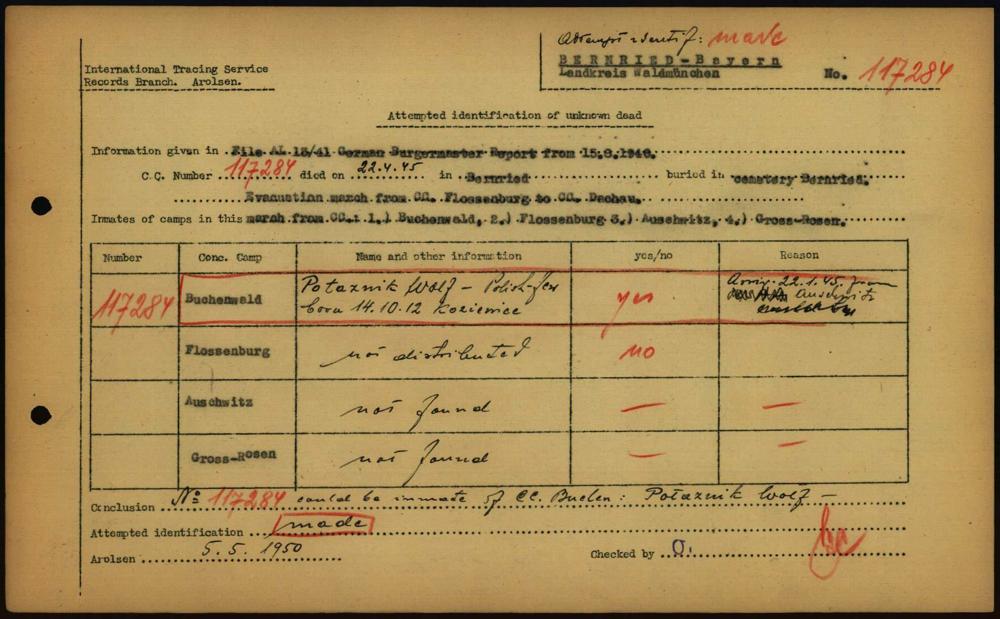 Attempt identif: made
BERNRIED-Bayern
International Tracing Service
Landkreis Waldmünchen
Records Branch. Arolsen.
No. 117284
Attempted identification of unknown dead
Information given in File AL 13/41 German Burgermaster Report from 15.8.1946.
C.C. Number 117284 died on 22.4.45 in Bernried buried in cemetery Bernried.
Evacuation march from CC. Flossenburg to CC. Dachau.
Inmates of camps in this march from CC.: 1.) Buchenwald, 2.) Flossenburg 3.) Auschwitz, 4.) Gross-Rosen.
Number Conc. Camp Name and other information yes/no Reason
117284 Buchenwald Potaznik Wolf - Polish-Jew yes Arriv. 22.1.45. from
born 14.10.12 Kozienice Auschwitz
Flossenburg not distributed no
Auschwitz not found — —
Gross-Rosen not found — —
Conclusion No 117284 could be inmate of CC. Buchen: Potaznik Wolf -
Attempted identification made
Arolsen 5.5. 1950 Checked by O.